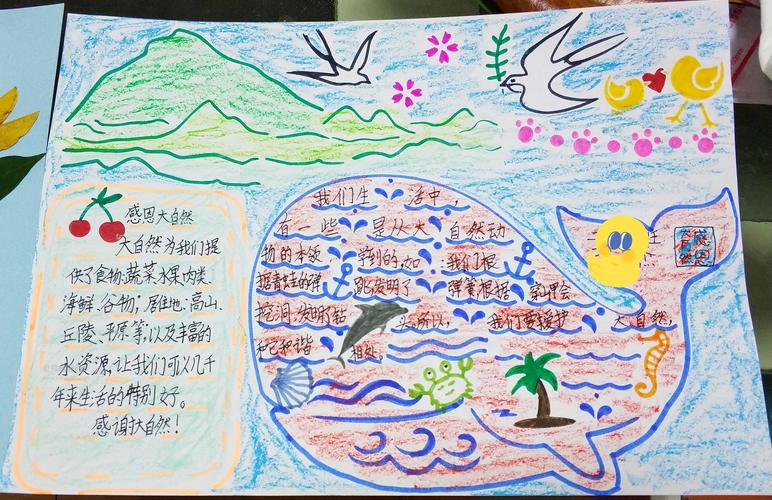 感恩大自然
大自然为我们提
供了食物:蔬菜水果肉类、
海鲜、谷物;居住地:高山、
丘陵、平原等,以及丰富的
水资源,让我们可以几千
年来生活的特别好。
感谢大自然!
我们生活中,
有一些是从大自然动
物的本领学到的,如:我们根
据青蛙的弹跳发明了弹簧,根据穿山甲会
挖洞,发明了钻头,所以,我们要爱护大自然,
和它和谐相处。
感恩
自然